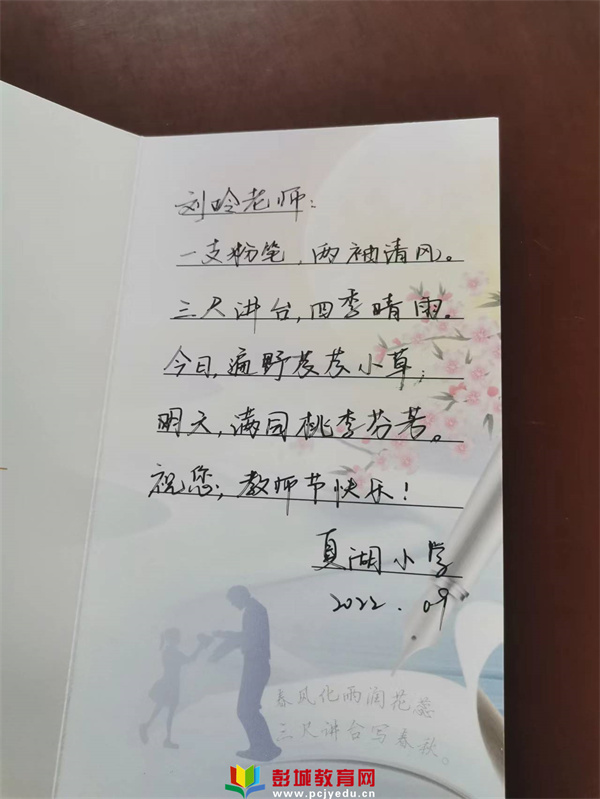 刘玲老师:
一支粉笔,两袖清风。
三尺讲台,四季晴雨.
今日,遍野茂茂小草;
明天,满园桃李芬芳。
祝您,教师节快乐!
夏湖小学
2022.09
春风化雨润花蕊
三尺讲台写春秋。
彭城教育网
www.pcjyedu.cn